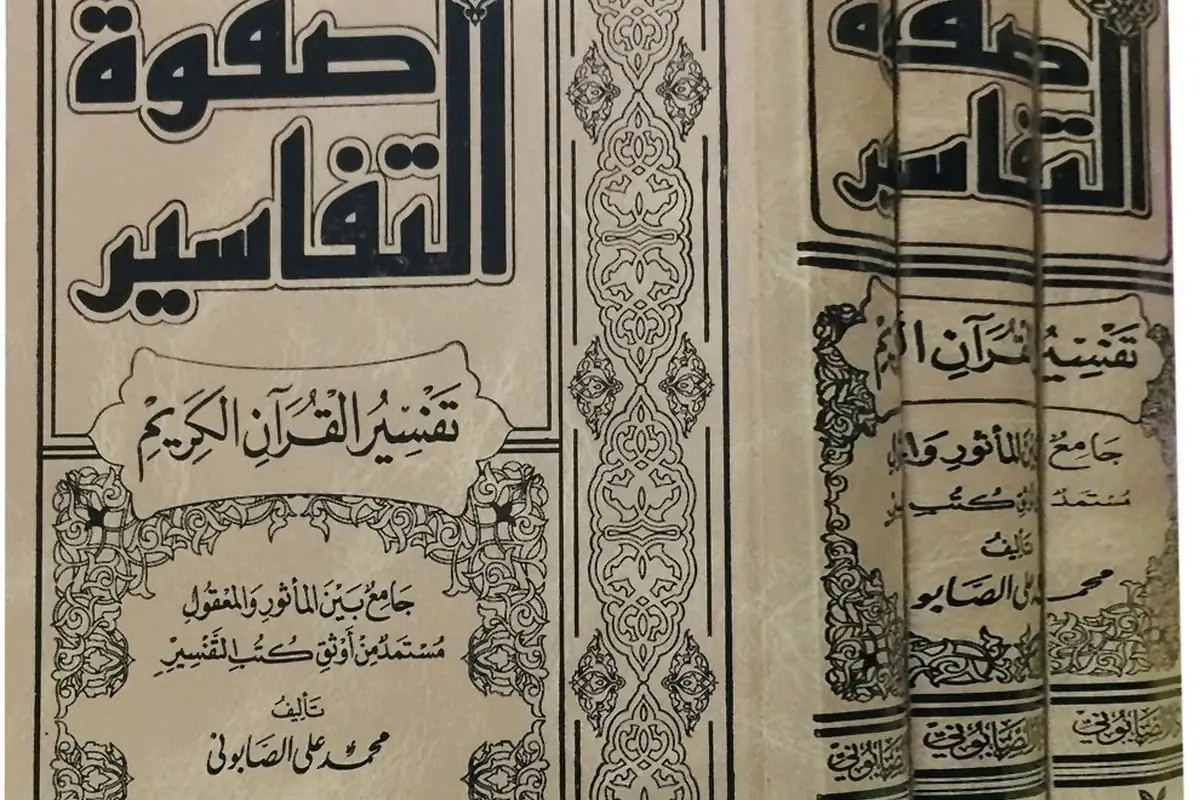 صفوة
التفاسير
تَفْسِيْرُ الْقُرْآنِ الْكَرِيْمِ
جَامِعٌ بَيْنَ المَأْثُورِ وَالمَعْقُولِ
مُسْتَمَدٌ مِنْ أَوْثَقِ كُتُبِ التَّفْسِيْرِ
تَأليفُ
محمد علي الصَابوني
صفوة
التفاسير
تَفْسِيْرُ الْقُرْآنِ
جَامِعٌ المَأْثُورِ
مُسْتَمَدٌ كُتُبِ
تَأليفُ
محمد علي
الصَابُوني
الصَابُوني
الصَابُوني